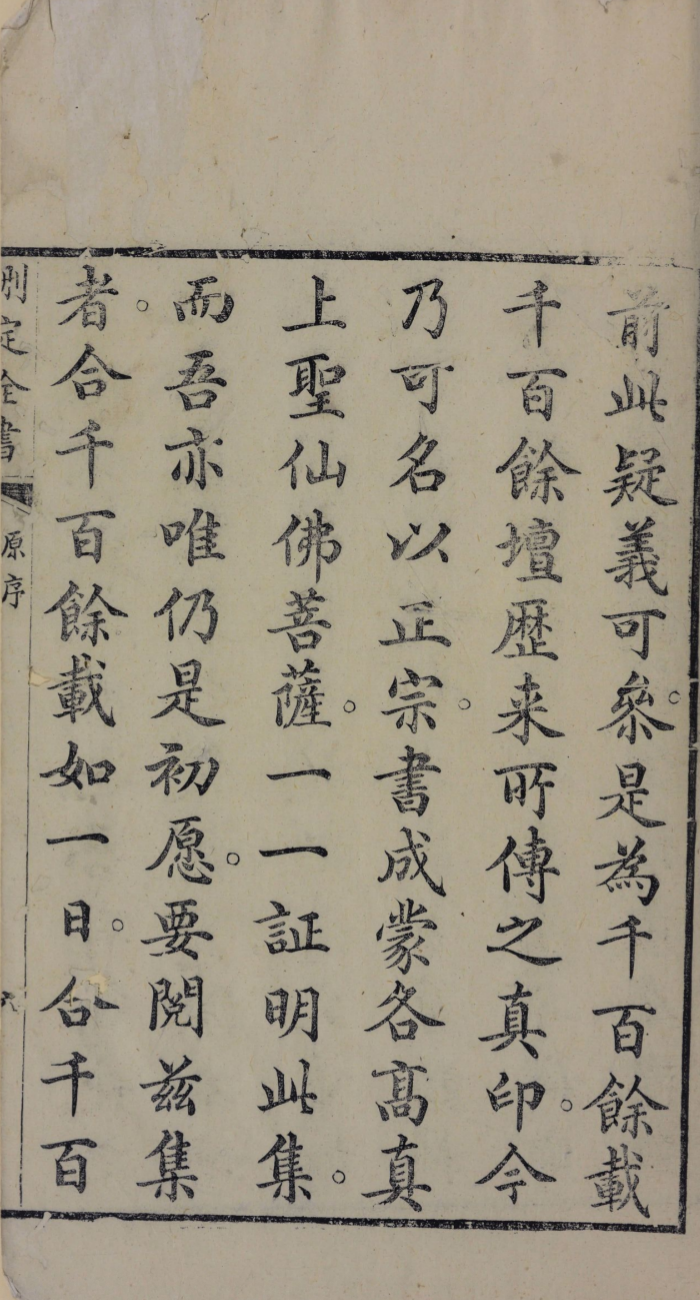 前此疑義可叅。是為千百餘載
千百餘壇歷来所傳之真印。今
乃可名以正宗。書成蒙各高真
上聖仙佛菩薩。一一証明此集。
而吾亦唯仍是初愿。要閱茲集
者。合千百餘載如一日。合千百
刪定全書 原序